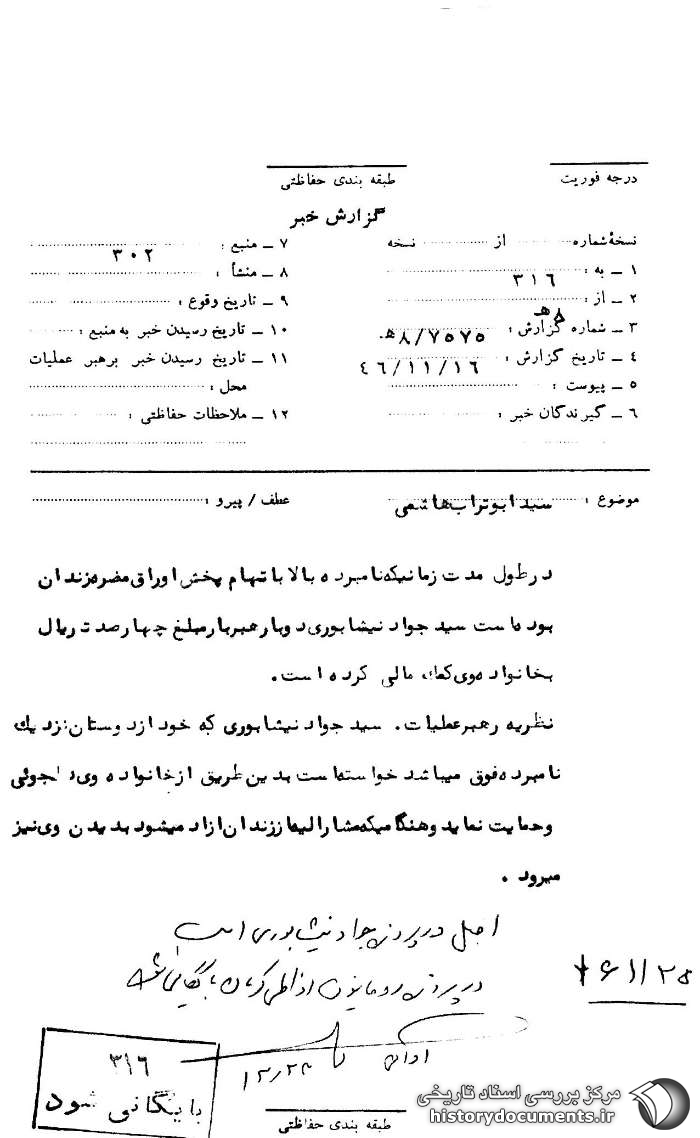 درجه فوریت
طبقه بندی حفاظتی
گزارش خبر
نسخهٔ شماره ........ از ........ نسخه
۱ ـ به : ۳۱۶
۲ ـ از : ۸ هـ
۳ ـ شماره گزارش : ۷۵۷۵/۸هـ
۴ ـ تاریخ گزارش : ۴۶/۱۱/۱۶
۵ ـ پیوست :
۶ ـ گیرندگان خبر :
۷ ـ منبع : ۳۰۲
۸ ـ منشأ :
۹ ـ تاریخ وقوع :
۱۰ ـ تاریخ رسیدن خبر به منبع :
۱۱ ـ تاریخ رسیدن خبر برهبر عملیات
محل :
۱۲ ـ ملاحظات حفاظتی :
موضوع : سید ابوتراب هاشمی
عطف / پیرو :
در طول مدت زمانیکه نامبرده بالا باتهام پخش اوراق مضره زندان
بوده است سید جواد نیشابوری دوبار هربار مبلغ چهارصد ریال
بخانواده وی کمک مالی کرده است.
نظریه رهبر عملیات. سید جواد نیشابوری که خود از دوستان نزدیک
نامبرده فوق میباشد خواسته است بدین طریق از خانواده وی دلجوئی
و حمایت نماید و هنگامیکه مشارالیه از زندان ازاد میشود بدیدن وی نیز
میرود .
اصل در پرونده جواد نیشابوری است
در پرونده
۳۱۶
بایگانی شود
طبقه بندی حفاظتی
مرکز بررسی اسناد تاریخی
historydocuments.ir